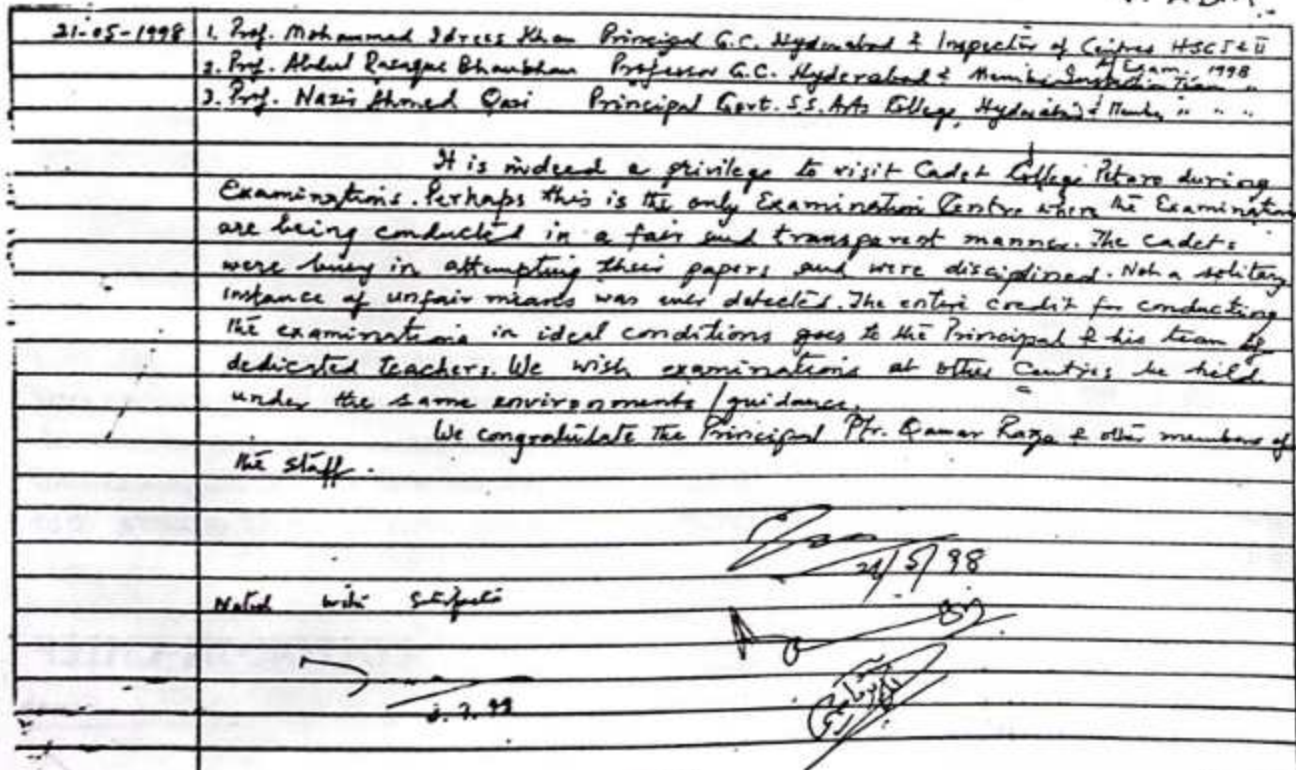 21-05-1998 1. Prof. Mohammad Idrees Khan Principal G.C. Hyderabad & Inspector of Centres HSC I & II
2. Prof. Abdul Razaque Bhaubhan Professor G.C. Hyderabad & Member Inspection Team "
Exam. 1998
3. Prof. Nazir Ahmed Qazi Principal Govt. S.S. Arts College, Hyderabad & Member " " "
It is indeed a privilege to visit Cadet College Petaro during
Examinations. Perhaps this is the only Examination Centre where the Examination
are being conducted in a fair and transparent manner. The cadets
were busy in attempting their papers and were disciplined. Not a solitary
instance of unfair means was ever detected. The entire credit for conducting
the examinations in ideal conditions goes to the Principal & his team of
dedicated teachers. We wish examinations at other Centres be held
under the same environments / guidance.
We congratulate the Principal Mr. Qamar Raza & other members of
the staff.
21/5/98
Noted with